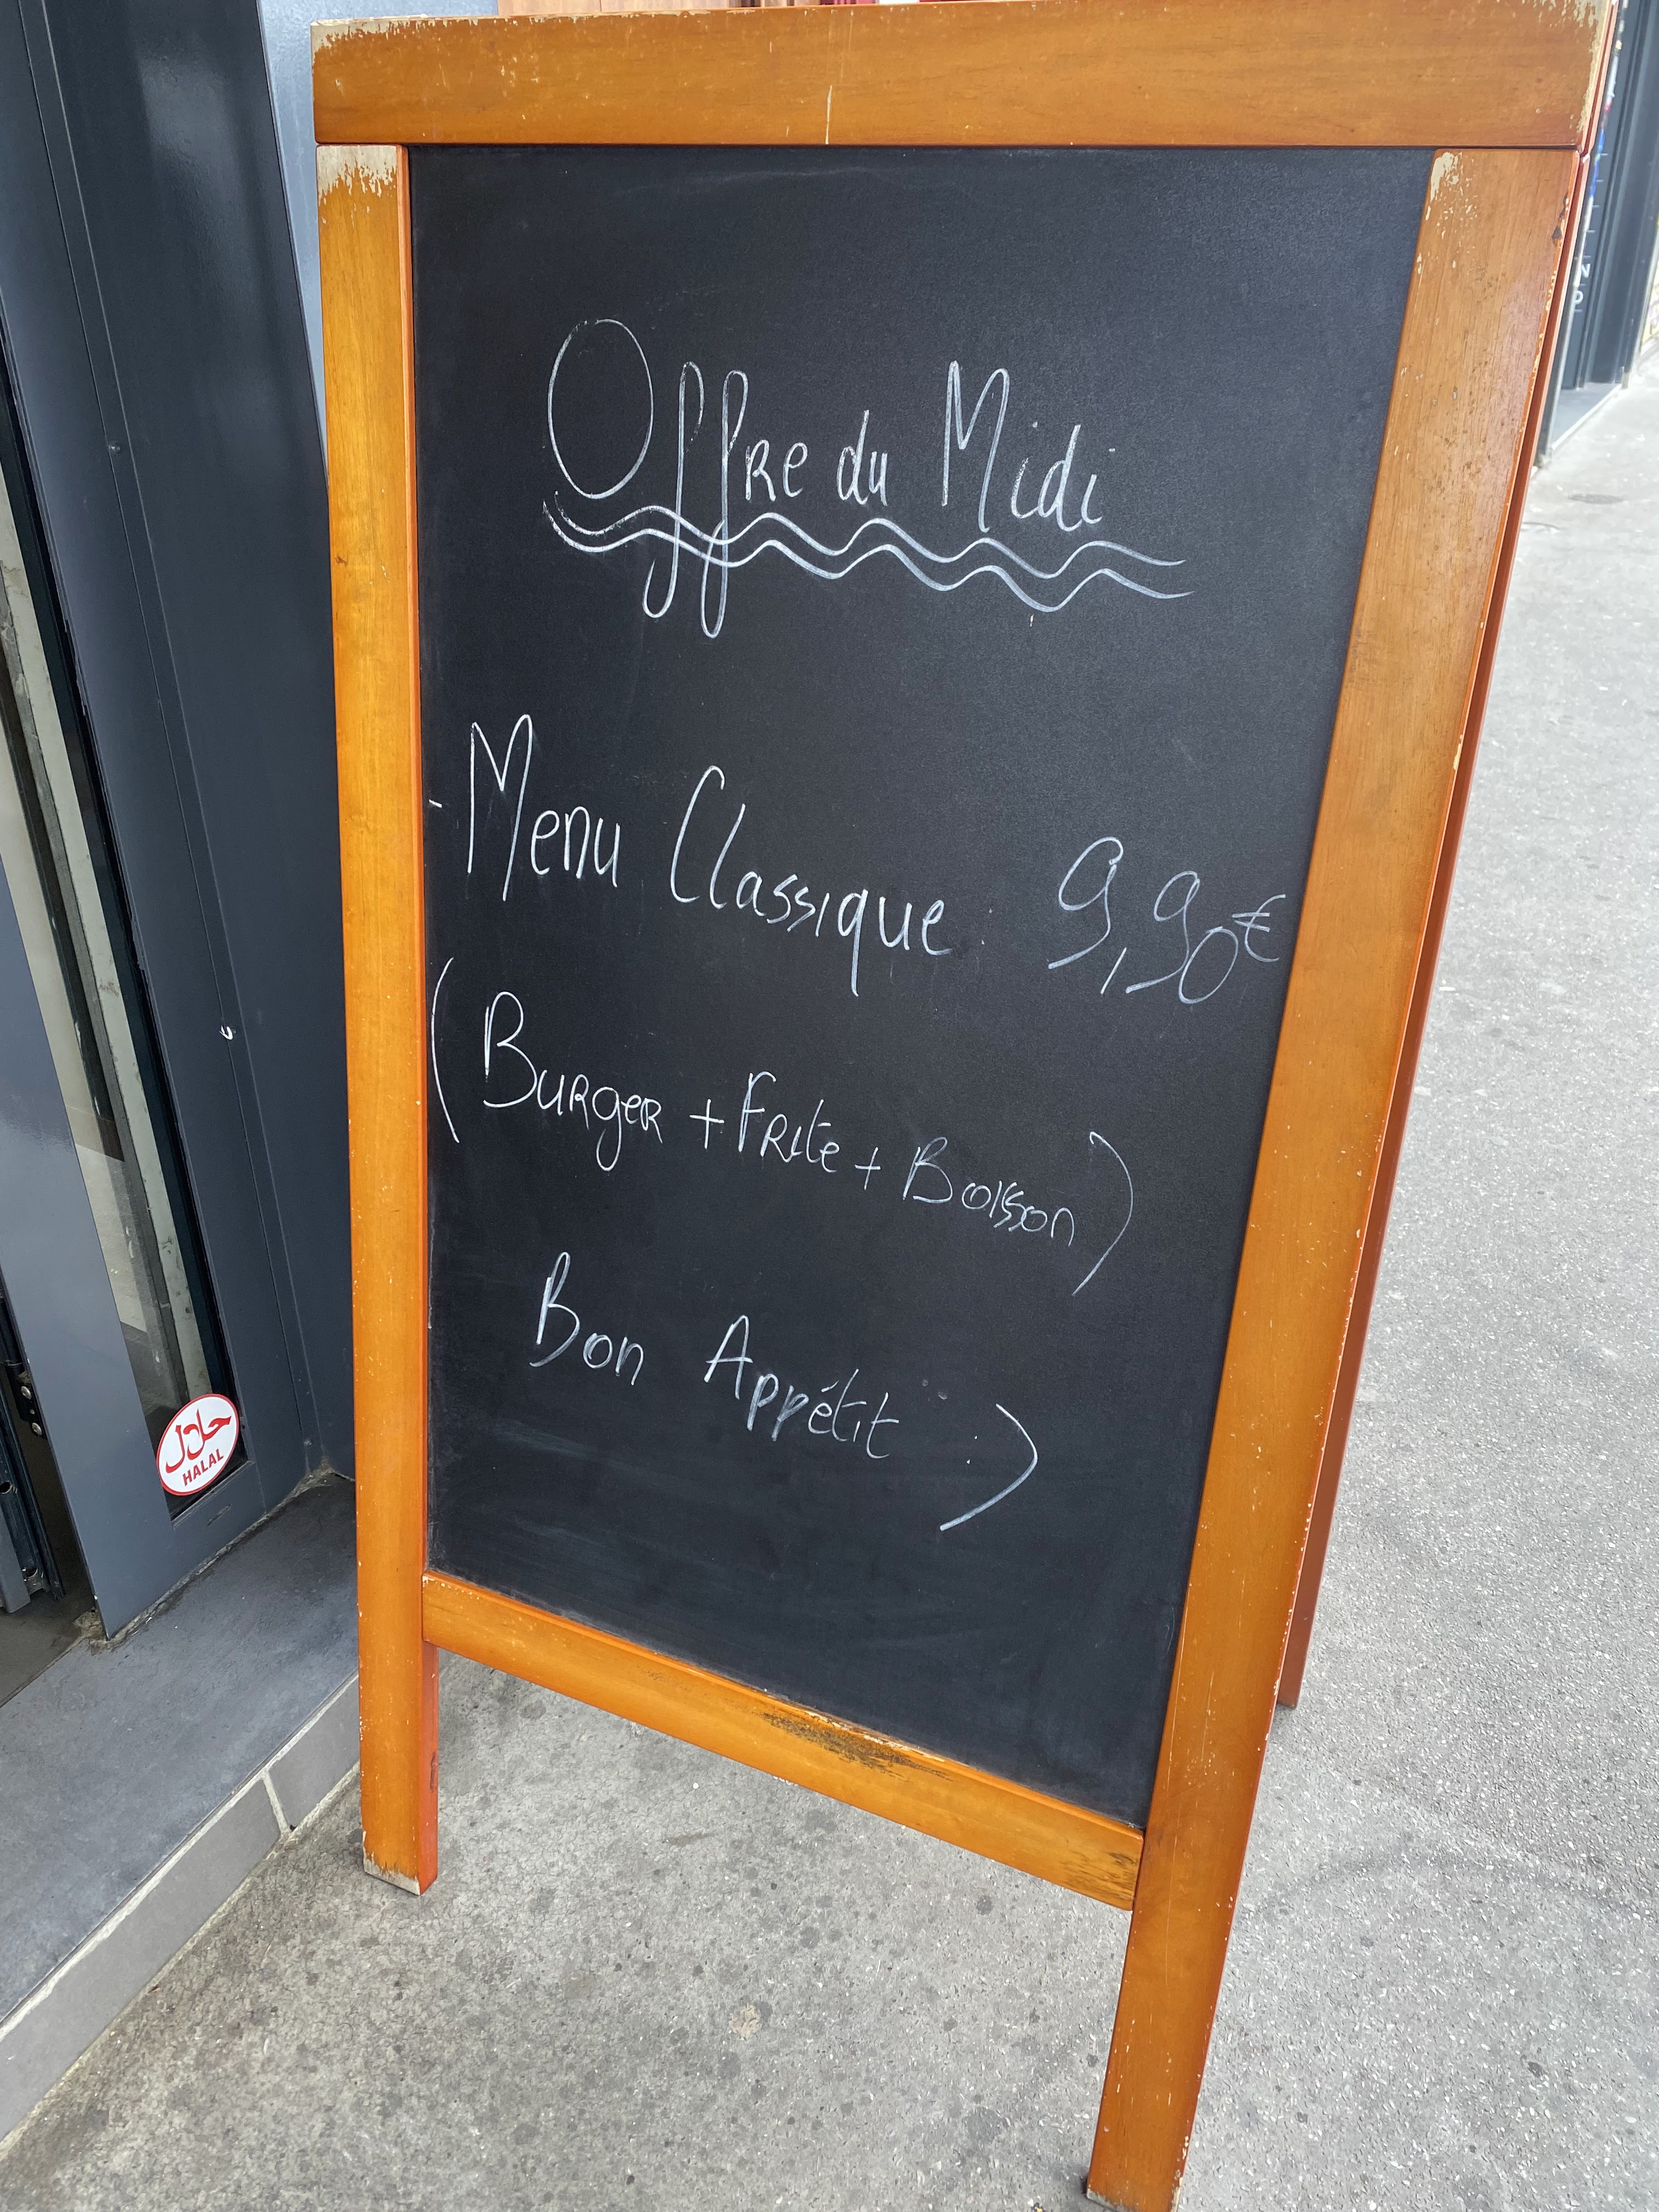 Offre du Midi
- Menu Classique : 9,90€
(Burger + Frite + Boisson)
Bon Appétit :)
حلال
HALAL